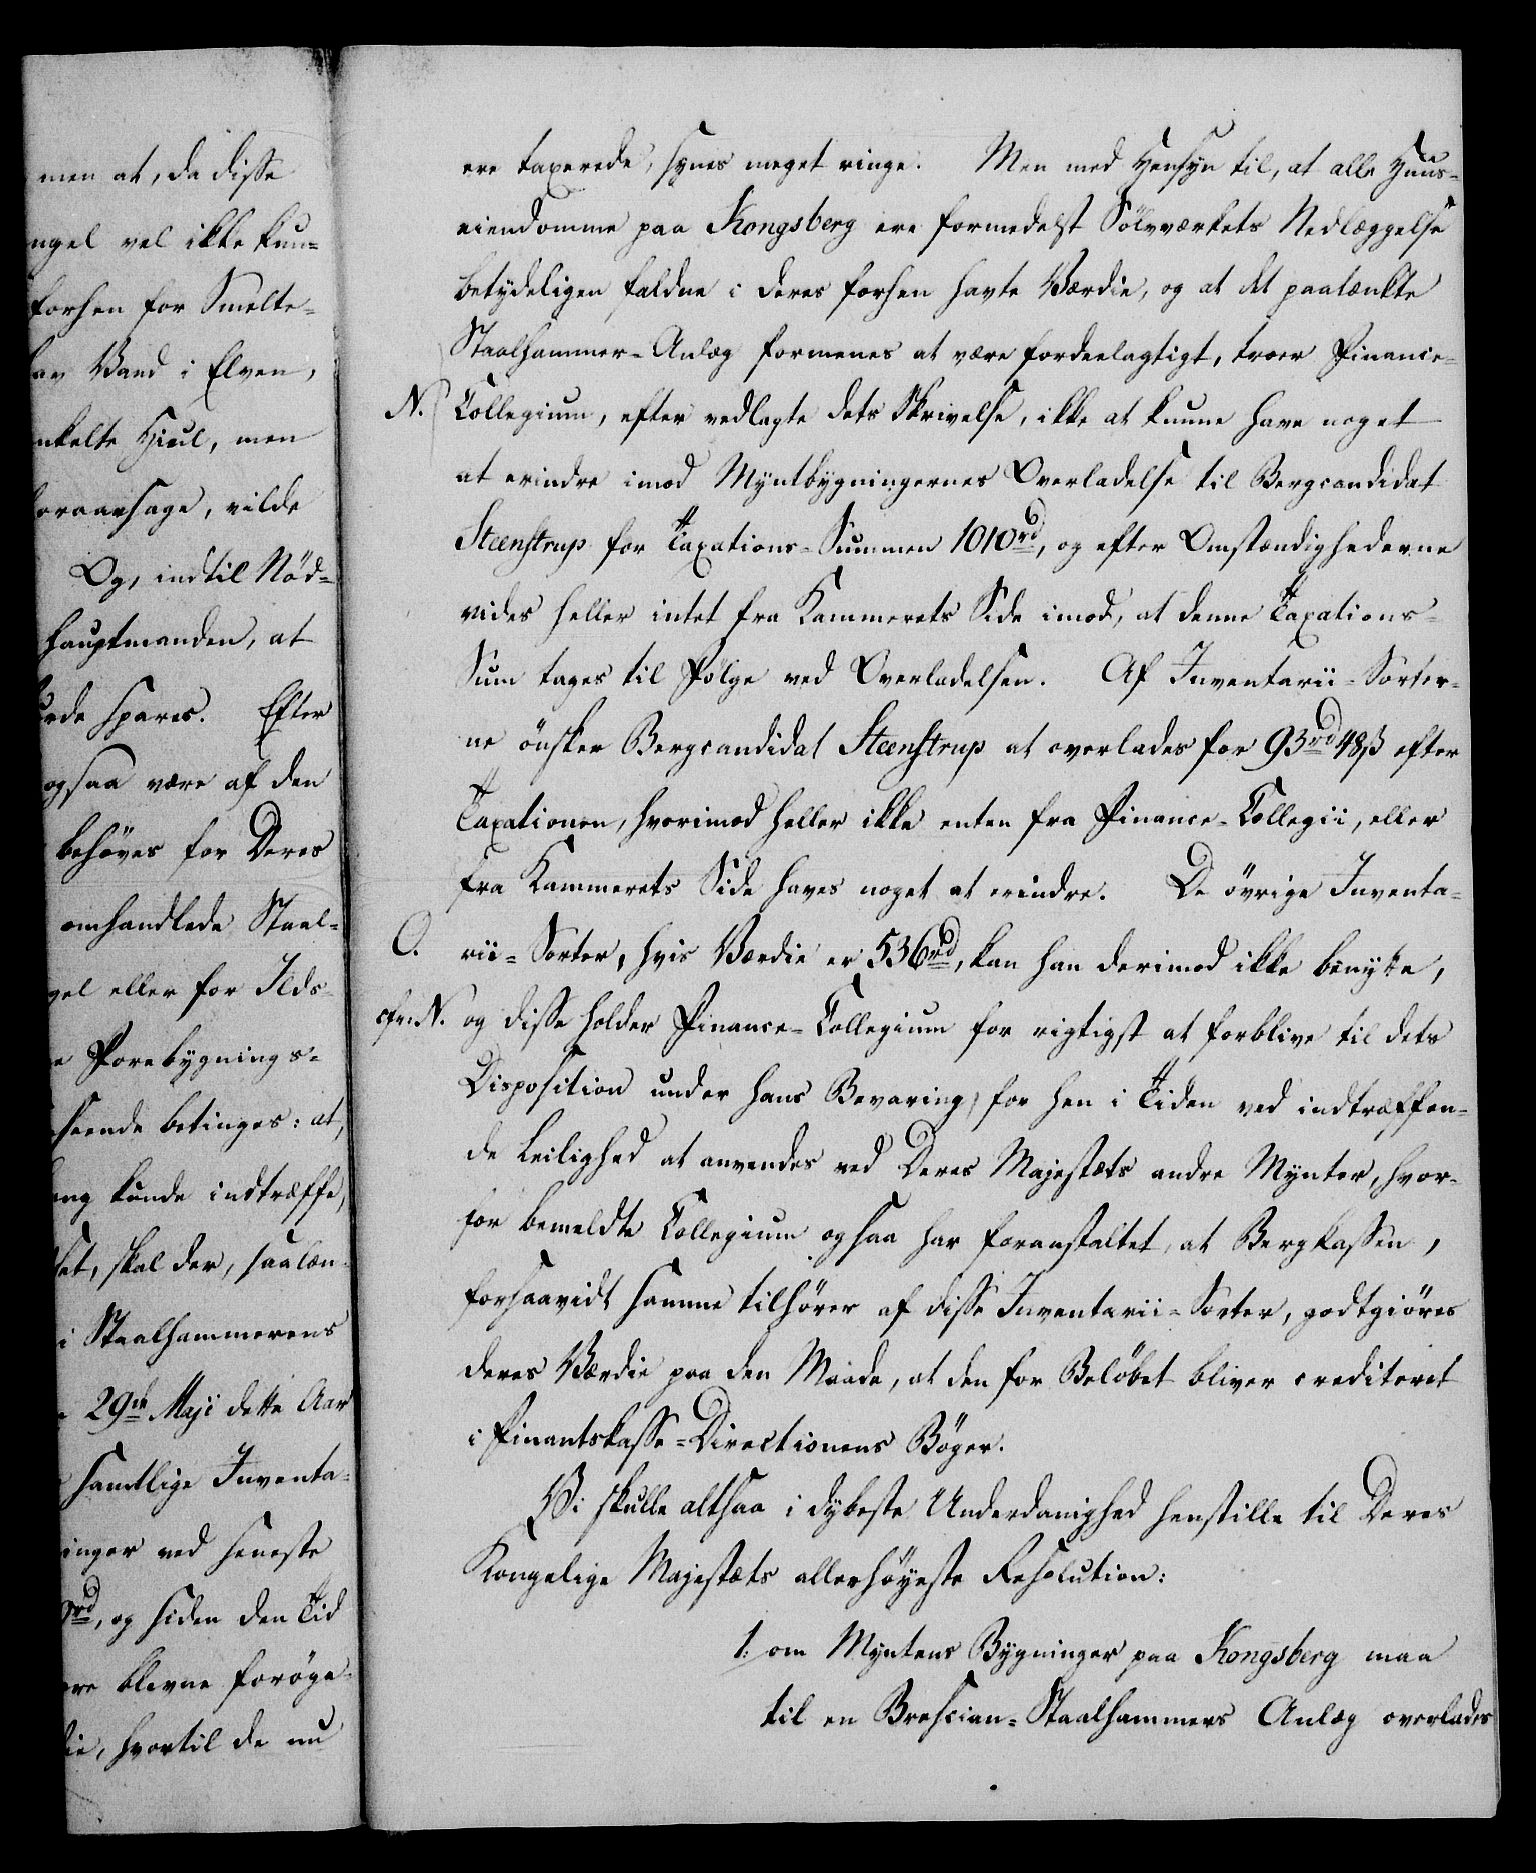 men at, da disse
ngel vel ikke kun=
forhen for Smelte=
av Vand i Elven,
nkelte Hiul, men
foraarsage, vilde
Og, indtil Nöd=
hauptmanden, at
urde spares. Efter
ogsaa være af den
behöves for Deres
omhandlede Staal=
gel eller for Ilds=
e Forebygnings=
seende betinges: at,
ang kunde indtræffe,
set, skal der, saalæn=
i Staalhammerens
29de Maji dette Aar
samtlige Inventa=
inger ved seneste
rd, og siden den Tid
ere blevne foröge=
die, hvortil de nu
ere taxerede, synes meget ringe. Men med Hensyn til, at alle Huus=
eiendomme paa Kongsberg ere formedelst Sölvværkets Nedlæggelse
betydeligen faldne i deres forhen havte Værdie, og at det paatænkte
Staalhammer=Anlæg formenes at være fordeelagtigt, troer Finance=
N. Collegium, efter vedlagte dets Skrivelse, ikke at kunne have noget
at erindre imod Myntbygningernes Overladelse til Bergcandidat
Steenstrup for Taxations=Summen 1010rd, og efter Omstændighederne
vides heller intet fra Kammerets Side imod, at denne Taxations=
Sum tages til Fölge ved Overladelsen. Af Inventarii=Sorter=
ne önsker Bergcandidat Steenstrup at overlades for 93rd 48ß efter
Taxationen, hvorimod heller ikke enten fra Finance=Collegii, eller
fra Kammerets Side haves noget at erindre. De övrige Inventa=
O. rii=Sorter, hvis Værdie er 536rd, kan han derimod ikke benytte,
cfr: N. og disse holder Finance=Collegium for rigtigst at forblive til dets
Disposition under hans Bevaring, for hen i Tiden ved indtræffen=
de Leilighed at anvendes ved Deres Majestæts andre Mynter, hvor=
for bemeldte Collegium ogsaa har foranstaltet, at Bergkassen,
forsaavidt samme tilhörer af disse Inventarii=Sorter, godtgiöres
deres Værdie paa den Maade, at den for Belöbet bliver crediteret
i Finantskasse=Directionens Böger.
Vi skulle altsaa i dybeste Underdanighed henstille til Deres
Kongelige Majestæts allerhöyeste Resolution:
1. om Myntens Bygninger paa Kongsberg maa
til en Brescian=Staalhammers Anlæg overlades